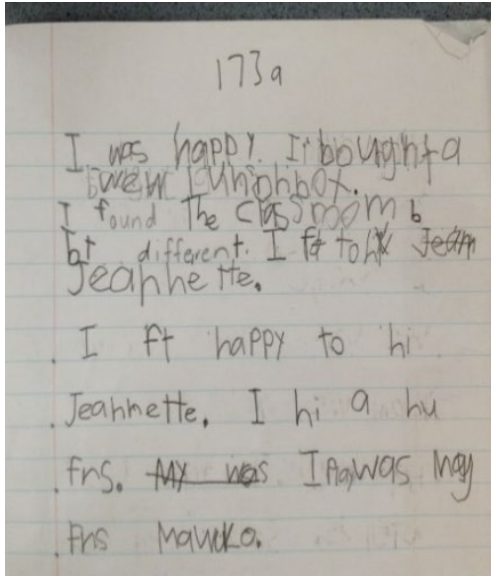 173a
I was happy. I bought a
new lunchbox.
I found the classroom b
bt different. I ft to Jeam
Jeannette.
I ft happy to hi
Jeannette. I hi a hu
frs. My was I was may
frs